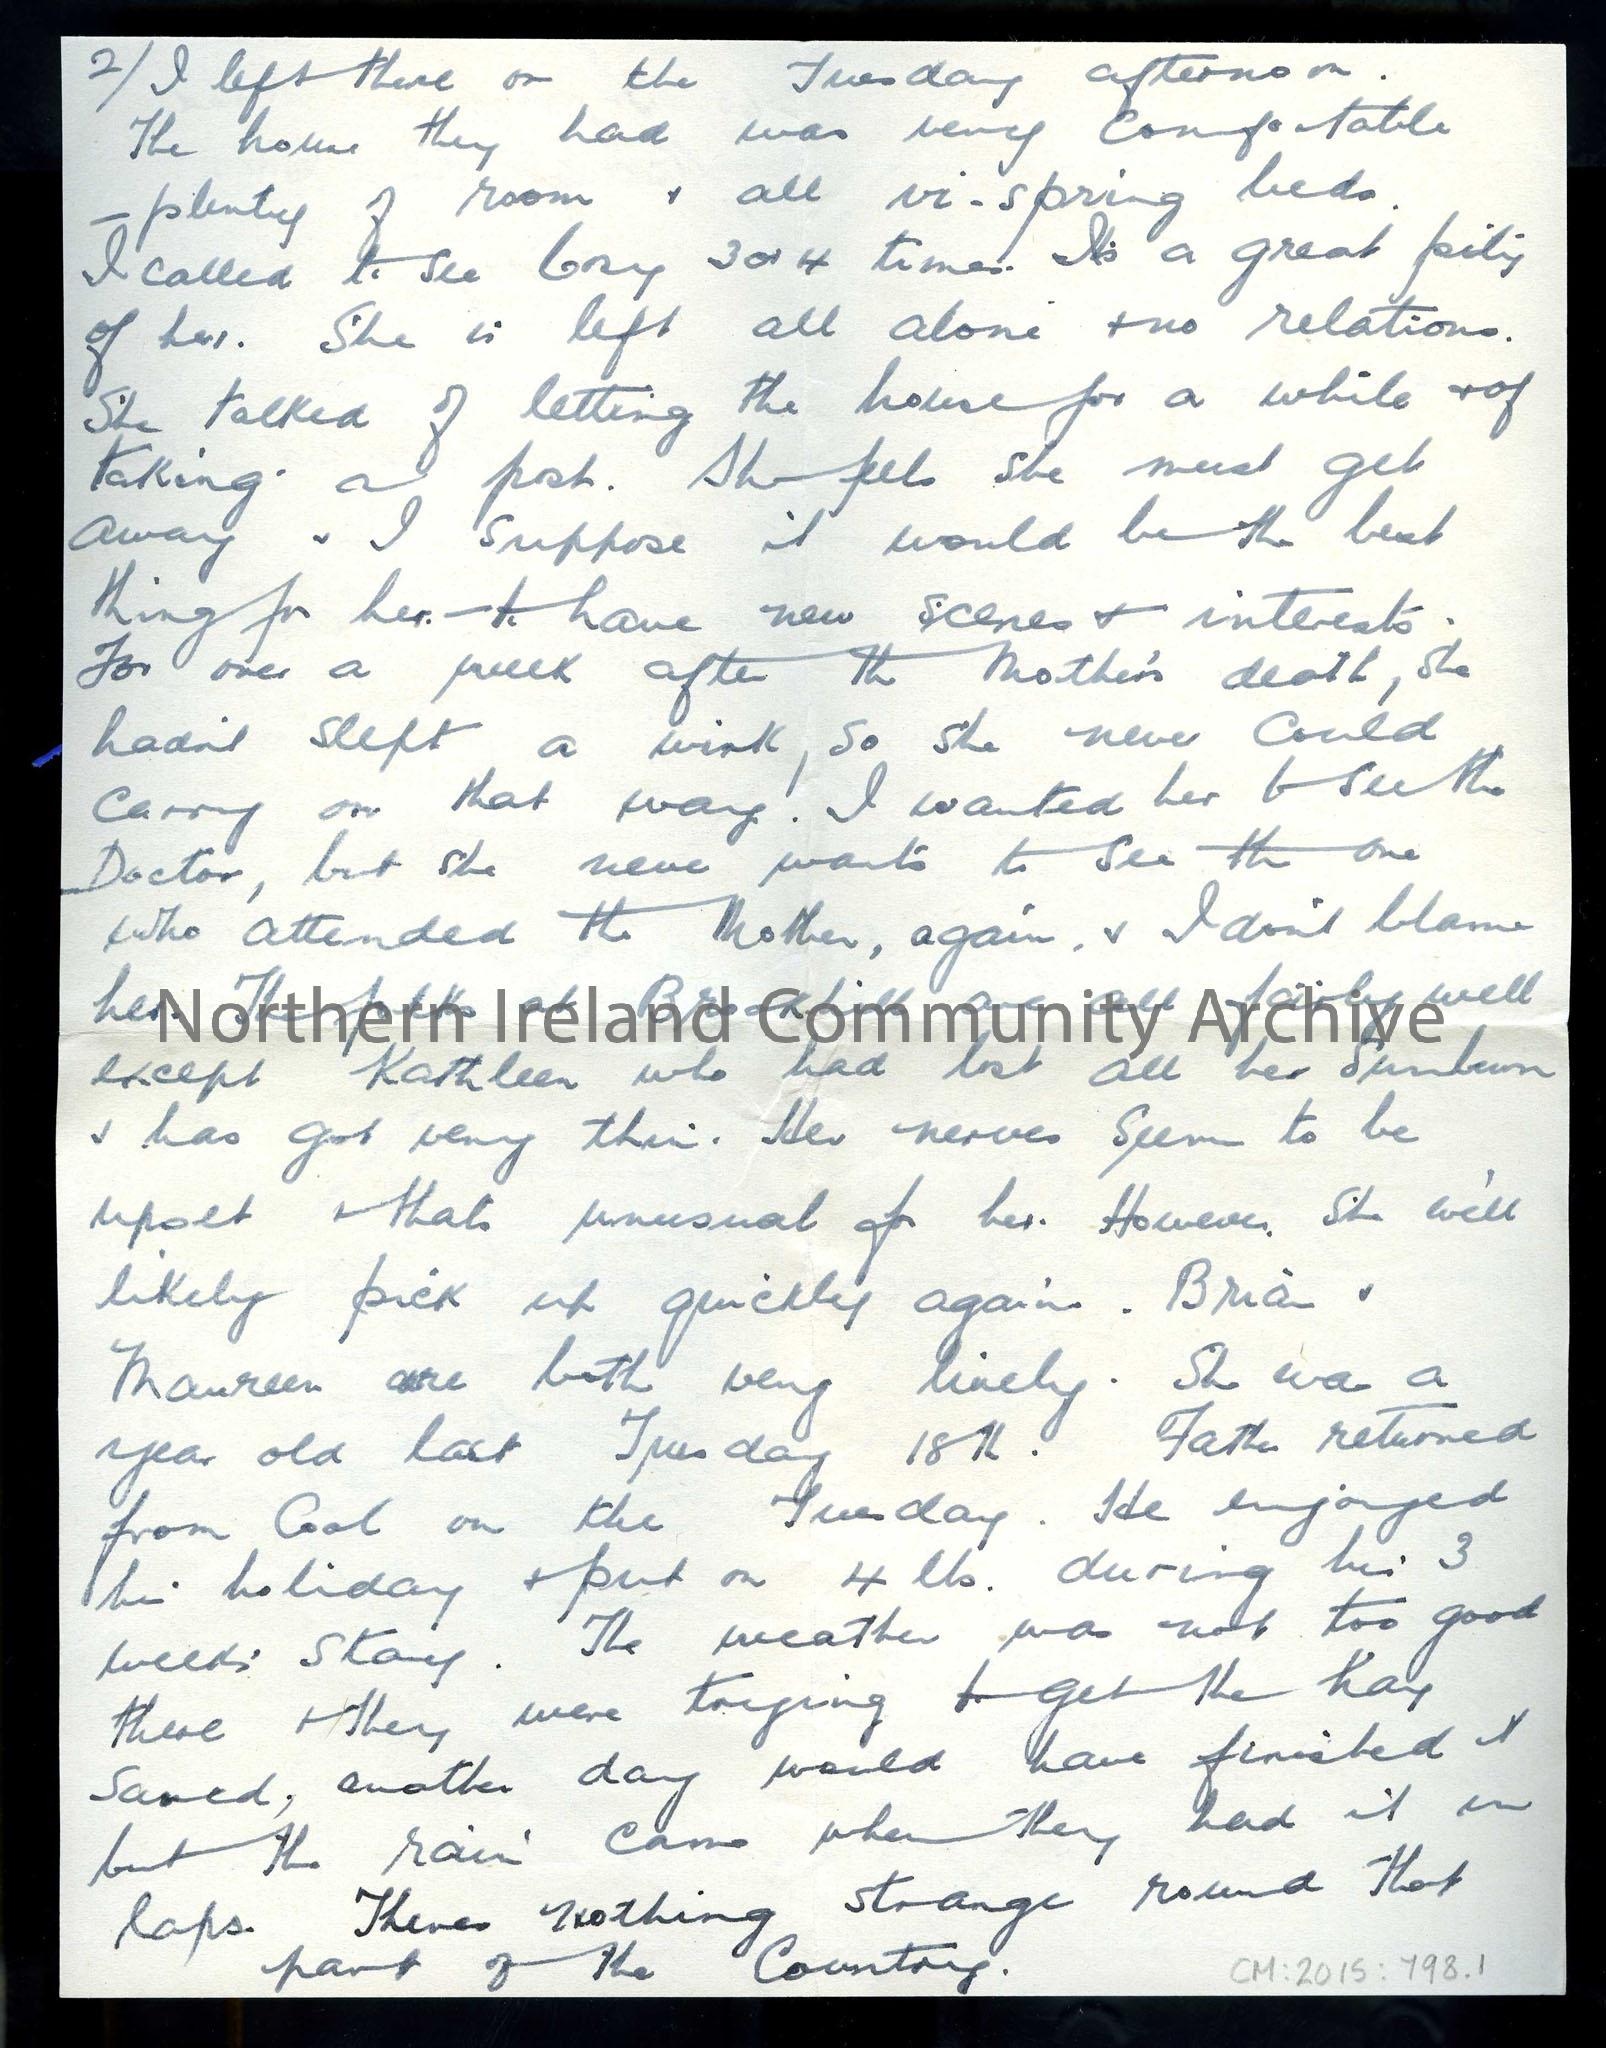 2/ I left there on the Tuesday afternoon.
The house they had was very comfortable
- plenty of room & all vi-spring beds.
I called to see Cosy 3 or 4 times. Its a great pity
of her. She is left all alone & no relations.
She talked of letting the house for a while & of
taking a post. She feels she must get
away & I suppose it would be the best
thing for her - to have new scenes & interests.
For over a week after the Mother's death, she
hadn't slept a wink, so she never could
carry on that way! I wanted her to see the
Doctor, but she never wants to see the one
who attended the Mother, again, & I don't blame
her. The folks at Brookhill are all fairly well
Northern Ireland Community Archive
except Kathleen who had lost all her Sunburn
& has got very thin. Her nerves seem to be
upset & thats unusual for her. However, she will
likely pick up quickly again. Brian &
Maureen are both very lively. She was a
year old last Tuesday 18th. Father returned
from Cool on the Tuesday. He enjoyed
his holiday & put on 4 lbs. during his 3
weeks stay. The weather was not too good
there & they were trying to get the hay
saved, another day would have finished it
but the rain came when they had it in
laps. Theres nothing strange round that
part of the Country.
CM:2015:798.1